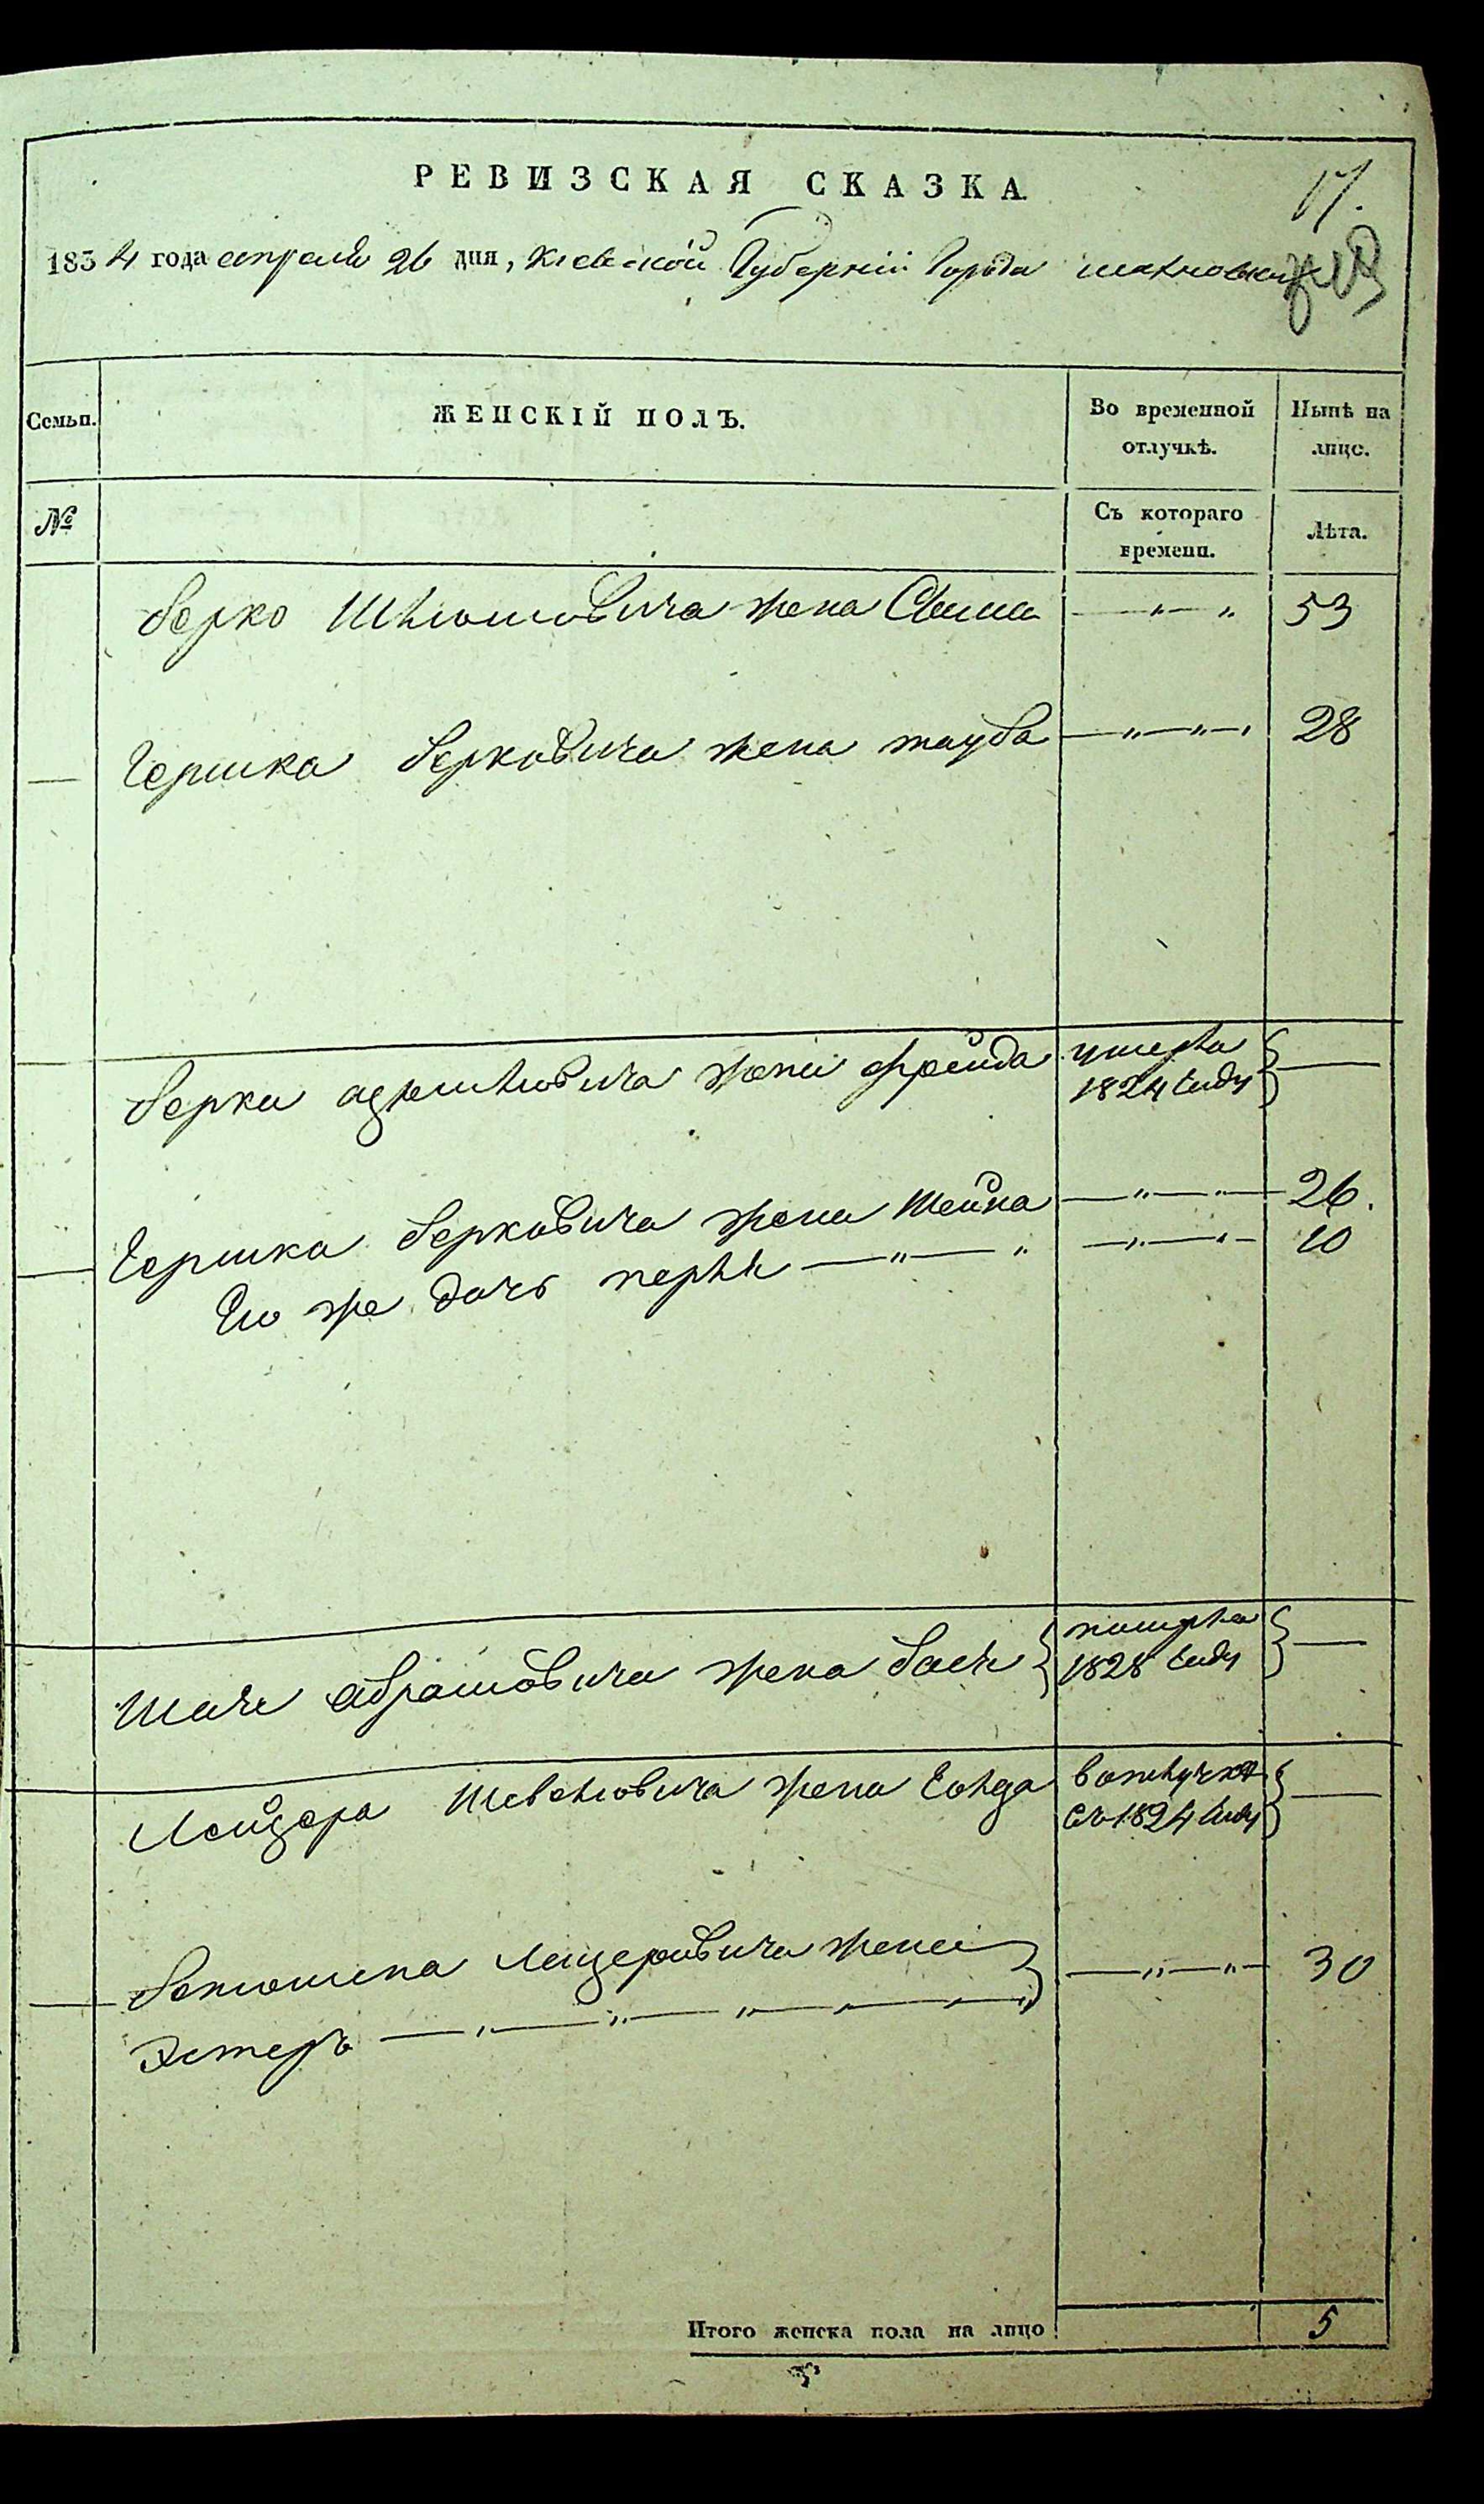 РЕВИЗСКАЯ СКАЗКА
17.
1834 года апреля 26 дня, Киевской Губерніи Города махновки
Семьи. ЖЕНСКІЙ ПОЛЪ. Во временной отлучкѣ. Нынѣ на лицо.
№ Съ котораго времени. Лѣта.
Берко Шлюмовича жена 53
Гершка Берковича жена тауба 28
Берка жена фрейда умерла 1824 году
Гершка Берковича жена Шейна 26.
Его же дочь перля 10
абрамовича жена бася померла 1828 году
Лейзера жена Голда в отлучке съ 1824 году
Лейзеровича жена 30
Эстеръ
Итого женска пола на лицо 5